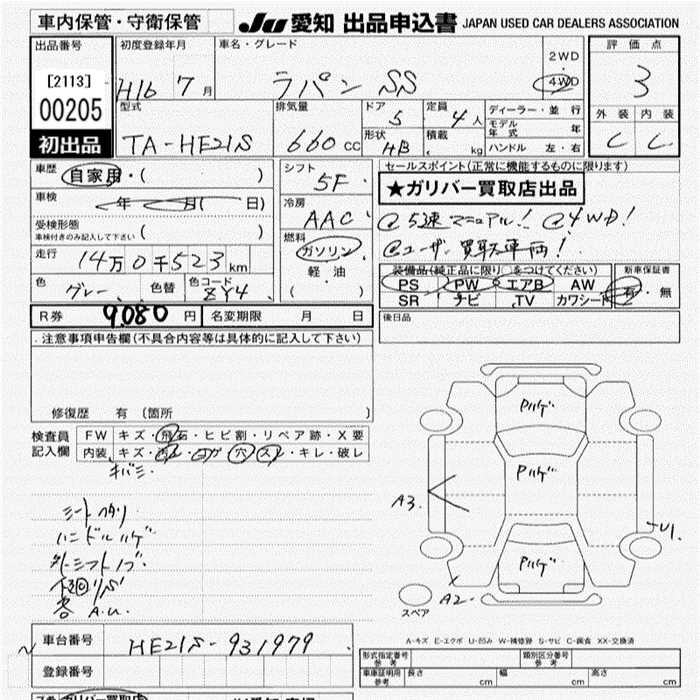 車内保管・守衛保管 JU 愛知 出品申込書 JAPAN USED CAR DEALERS ASSOCIATION
出品番号 初度登録年月 車名・グレード 評価点
[2113] H16 7月 ラパン SS 2WD・4WD 3
00205 型式 排気量 ドア 5 定員 4人 ディーラー・並行 外装 内装
初出品 TA-HE21S 660cc 形状 HB 積載 kg モデル年式 年 C C
ハンドル 左・右
車歴 自家用・( ) シフト 5F セールスポイント(正常に機能するものに限ります)
車検 年 月( 日) 冷房 AAC ★ガリバー買取店出品
受検形態 ( ) @5速マニュアル! @4WD!
車検付きのみ記入して下さい 燃料 ガソリン @ユーザー買取車両!
走行 14万0千523km 軽油
色 グレー 色替 色コード ZY4 ( )
装備品(純正品に限り○をつけてください) 新車保証書
PS PW エアB AW 有・無
SR ナビ TV カワシート
R券 9,080円 名変期限 月 日 後日品
注意事項申告欄(不具合内容等は具体的に記入して下さい)
修復歴 有 (箇所 )
検査員記入欄 FW キズ・飛石・ヒビ割・リペア跡・X要
内装 キズ・ ・ ・穴・ ・キレ・破レ
キバミ
ハンドルハゲ
外シフトノブ
A.U.
Pハゲ
Pハゲ
Pハゲ
A3
U1
A2
スペア
A-キズ E-エクボ U-凹み W-補修跡 S-サビ C-腐食 XX-交換済
車台番号 HE21S-931979
登録番号
形式指定番号 参考 類別区分番号 参考
車庫証明用 参考 長さ cm 幅 cm 高さ cm
ガリバー買取店